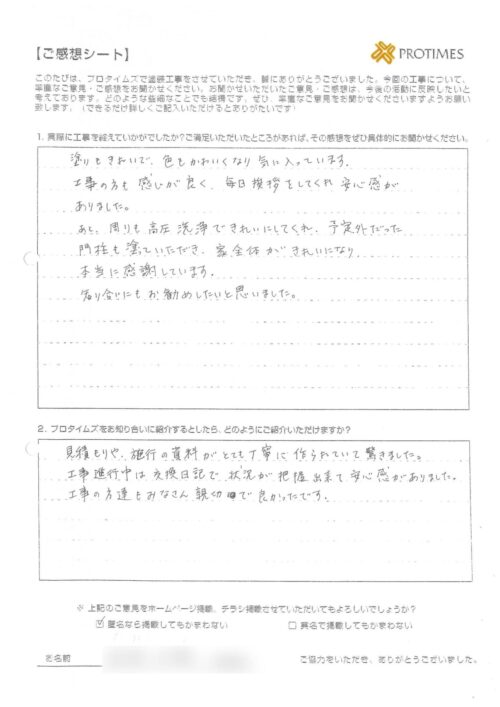 【ご感想シート】
PROTIMES
このたびは、プロタイムズで塗装工事をさせていただき、誠にありがとうございました。今回の工事について、
率直なご意見・ご感想をお聞かせください。お聞かせいただいたご意見・ご感想は、今後の活動に反映したいと
考えております。どのような些細なことでも結構です。ぜひ、率直なご意見をお聞かせくださいますようお願い
致します。(できるだけ詳しくご記入いただけるとありがたいです)
1. 実際に工事を終えていかがでしたか?ご満足いただいたところがあれば、その感想をぜひ具体的にお聞かせください。
塗りもきれいで、色もかわいくなり気に入っています。
工事の方も感じが良く、毎日挨拶をしてくれ安心感が
ありました。
あと、周りも高圧洗浄できれいにしてくれ、予定外だった
門柱も塗っていただき、家全体がきれいになり
本当に感謝しています。
知り合いにもお勧めしたいと思いました。
2. プロタイムズをお知り合いに紹介するとしたら、どのようにご紹介いただけますか?
見積もりや、施行の資料がとても丁寧に作られていて驚きました。
工事進行中は交換日記で状況が把握出来て安心感がありました。
工事の方達もみなさん親切で良かったです。
※ 上記のご意見をホームページ掲載、チラシ掲載させていただいてもよろしいでしょうか?
☑ 匿名なら掲載してもかまわない □ 実名で掲載してもかまわない
お名前 ご協力をいただき、ありがとうございました。